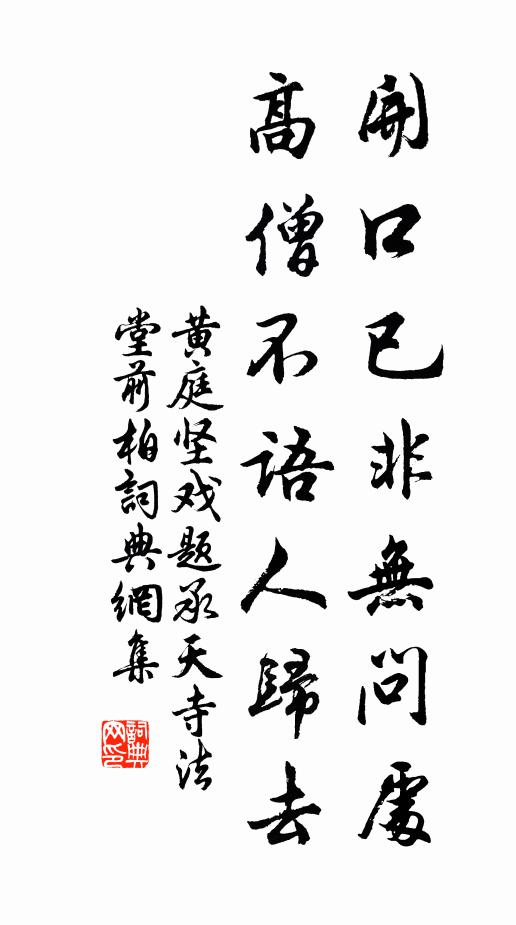 開口已非無問處
高僧不語人歸去
黄庭坚戏题承天寺法
堂前柏詞典網集
詞典
网印